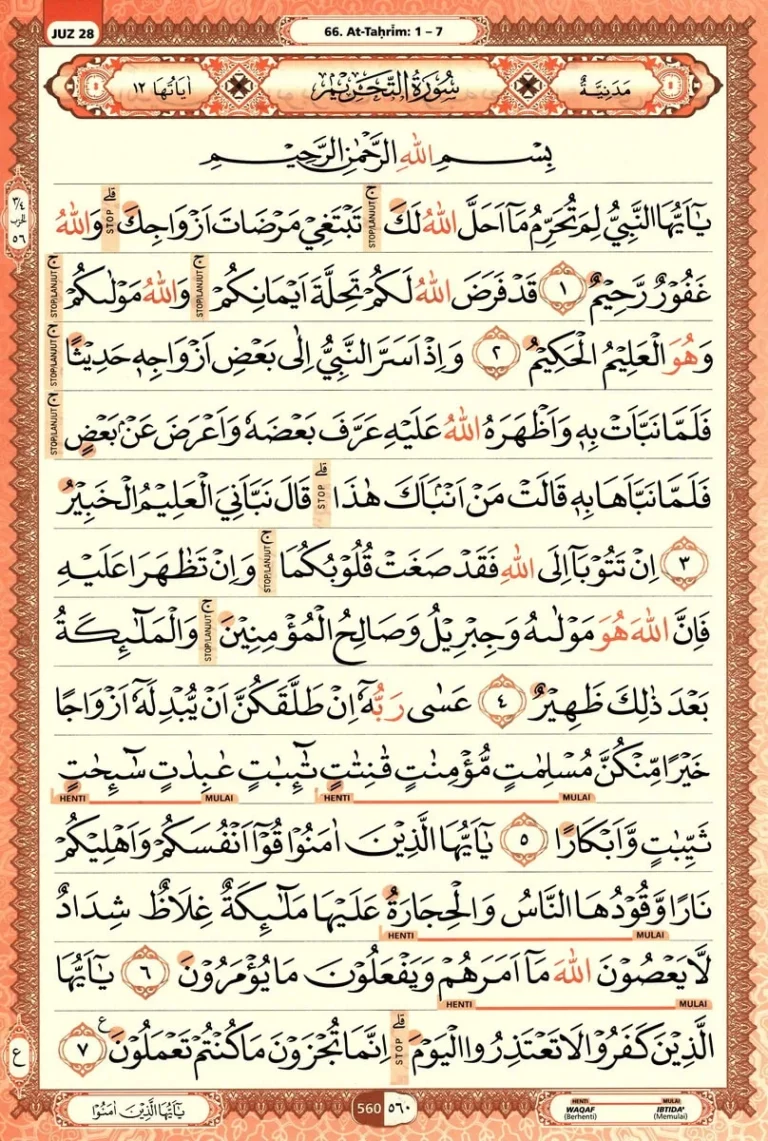 JUZ 28
66. At-Taḥrīm: 1 – 7
مَدَنِيَّةٌ
سُوْرَةُ التَّحْرِيْمِ
اٰيَاتُهَا ١٢
بِسْمِ اللّٰهِ الرَّحْمٰنِ الرَّحِيْمِ
يٰٓاَيُّهَا النَّبِيُّ لِمَ تُحَرِّمُ مَآ اَحَلَّ اللّٰهُ لَكَۚ STOP/LANJUT تَبْتَغِيْ مَرْضَاتَ اَزْوَاجِكَۗ STOP وَاللّٰهُ
غَفُوْرٌ رَّحِيْمٌ ١ قَدْ فَرَضَ اللّٰهُ لَكُمْ تَحِلَّةَ اَيْمَانِكُمْۚ STOP/LANJUT وَاللّٰهُ مَوْلٰىكُمْۚ STOP/LANJUT
وَهُوَ الْعَلِيْمُ الْحَكِيْمُ ٢ وَاِذْ اَسَرَّ النَّبِيُّ اِلٰى بَعْضِ اَزْوَاجِهٖ حَدِيْثًاۚ STOP/LANJUT
فَلَمَّا نَبَّاَتْ بِهٖ وَاَظْهَرَهُ اللّٰهُ عَلَيْهِ عَرَّفَ بَعْضَهٗ وَاَعْرَضَ عَنْۢ بَعْضٍۚ STOP/LANJUT
فَلَمَّا نَبَّاَهَا بِهٖ قَالَتْ مَنْ اَنْۢبَاَكَ هٰذَاۗ STOP قَالَ نَبَّاَنِيَ الْعَلِيْمُ الْخَبِيْرُ
٣ اِنْ تَتُوْبَآ اِلَى اللّٰهِ فَقَدْ صَغَتْ قُلُوْبُكُمَاۚ STOP/LANJUT وَاِنْ تَظٰهَرَا عَلَيْهِ
فَاِنَّ اللّٰهَ هُوَ مَوْلٰىهُ وَجِبْرِيْلُ وَصَالِحُ الْمُؤْمِنِيْنَۚ STOP/LANJUT وَالْمَلٰۤىِٕكَةُ
بَعْدَ ذٰلِكَ ظَهِيْرٌ ٤ عَسٰى رَبُّهٗٓ اِنْ طَلَّقَكُنَّ اَنْ يُّبْدِلَهٗٓ اَزْوَاجًا
خَيْرًا مِّنْكُنَّ مُسْلِمٰتٍ مُّؤْمِنٰتٍ قٰنِتٰتٍ تٰۤىِٕبٰتٍ عٰبِدٰتٍ سٰۤىِٕحٰتٍ
MULAI HENTI MULAI HENTI
ثَيِّبٰتٍ وَّاَبْكَارًا ٥ يٰٓاَيُّهَا الَّذِيْنَ اٰمَنُوْا قُوْٓا اَنْفُسَكُمْ وَاَهْلِيْكُمْ
نَارًا وَّقُوْدُهَا النَّاسُ وَالْحِجَارَةُ عَلَيْهَا مَلٰۤىِٕكَةٌ غِلَاظٌ شِدَادٌ
MULAI HENTI
لَّا يَعْصُوْنَ اللّٰهَ مَآ اَمَرَهُمْ وَيَفْعَلُوْنَ مَا يُؤْمَرُوْنَ ٦ يٰٓاَيُّهَا
MULAI HENTI
الَّذِيْنَ كَفَرُوْا لَا تَعْتَذِرُوا الْيَوْمَۗ STOP اِنَّمَا تُجْزَوْنَ مَا كُنْتُمْ تَعْمَلُوْنَ ࣖ ٧
٣/٤
الحزب
٥٦
ع
يٰٓاَيُّهَا الَّذِيْنَ اٰمَنُوْا
560 ٥٦٠
HENTI MULAI
WAQAF IBTIDA'
(Berhenti) (Memulai)